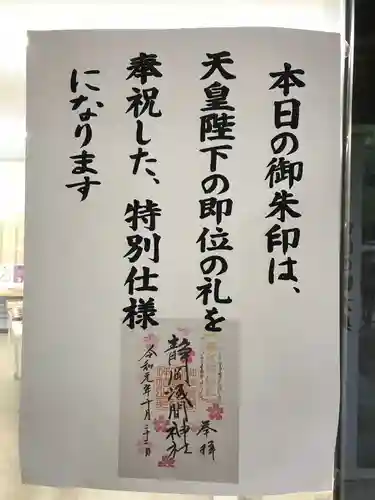 本日の御朱印は、
天皇陛下の即位の礼を
奉祝した、特別仕様
になります
奉拝
静岡浅間神社
令和元年十月二十二日